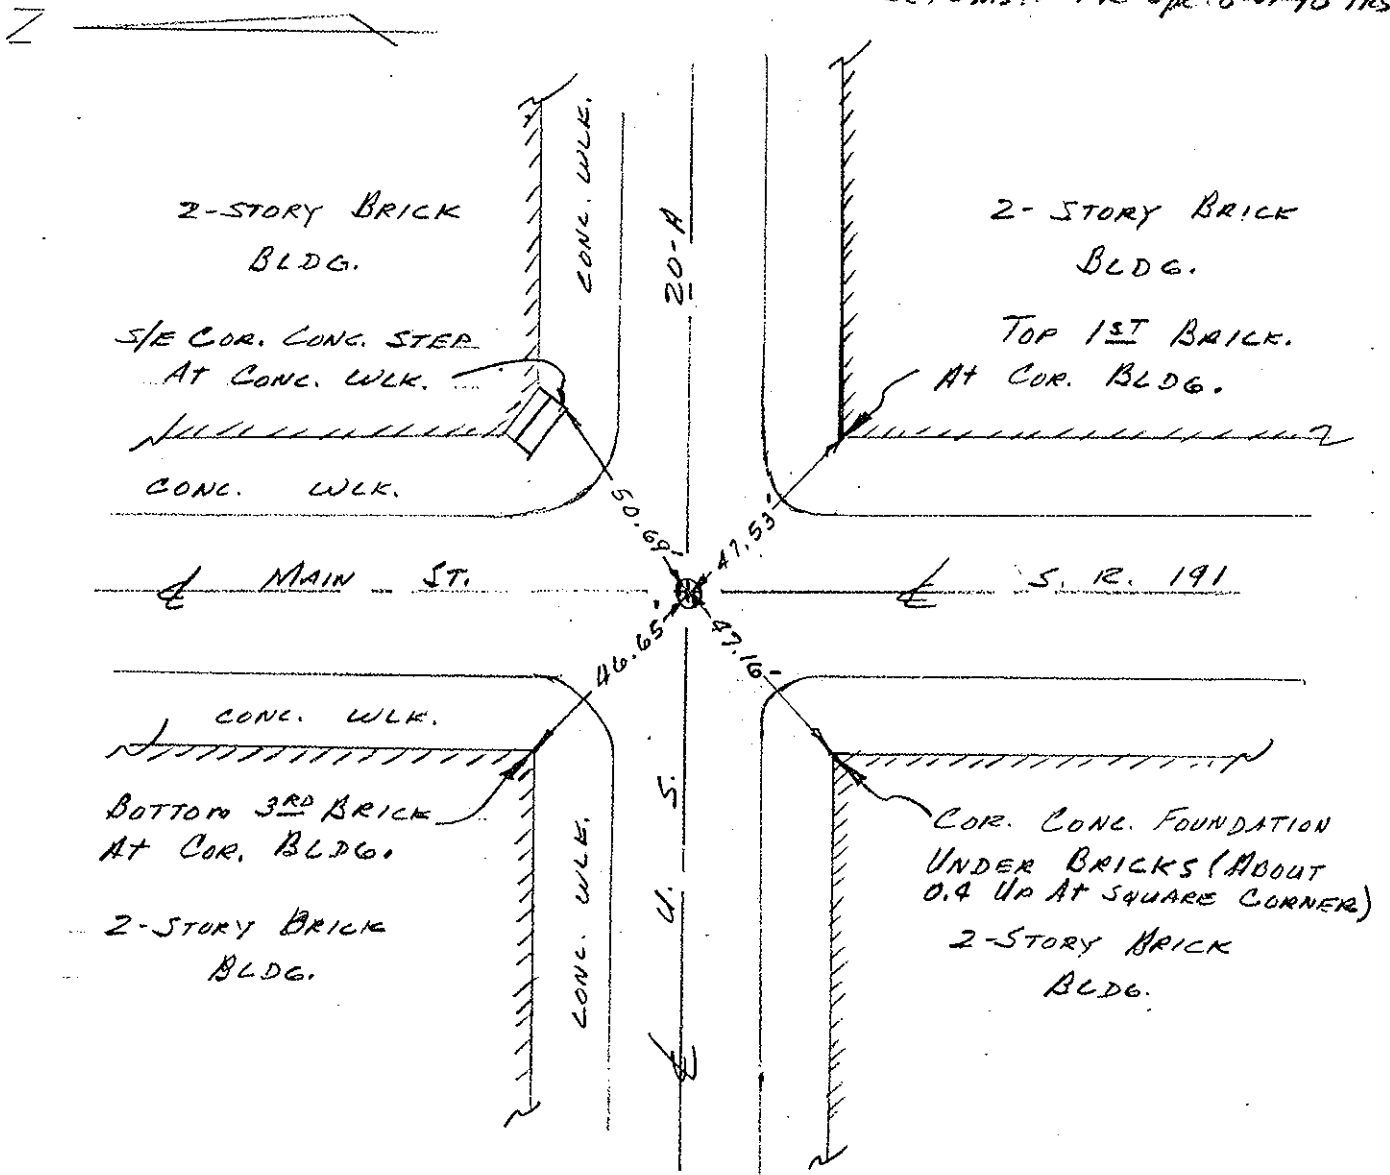 Z
2-STORY BRICK
BLDG.
S/E COR. CONC. STEP
At CONC. WLK.
CONC. WLK.
CONC. WLK.
20-A
2-STORY BRICK
BLDG.
TOP 1ST BRICK.
At COR. BLDG.
50.69'
47.53'
℄ MAIN ST.
℄ S. R. 191
46.65'
47.16'
CONC. WLK.
BOTTOM 3RD BRICK
At COR. BLDG.
2-STORY BRICK
BLDG.
CONC. WLK.
℄ U. S.
COR. CONC. FOUNDATION
UNDER BRICKS (ABOUT
0.4 UP At SQUARE CORNER)
2-STORY BRICK
BLDG.